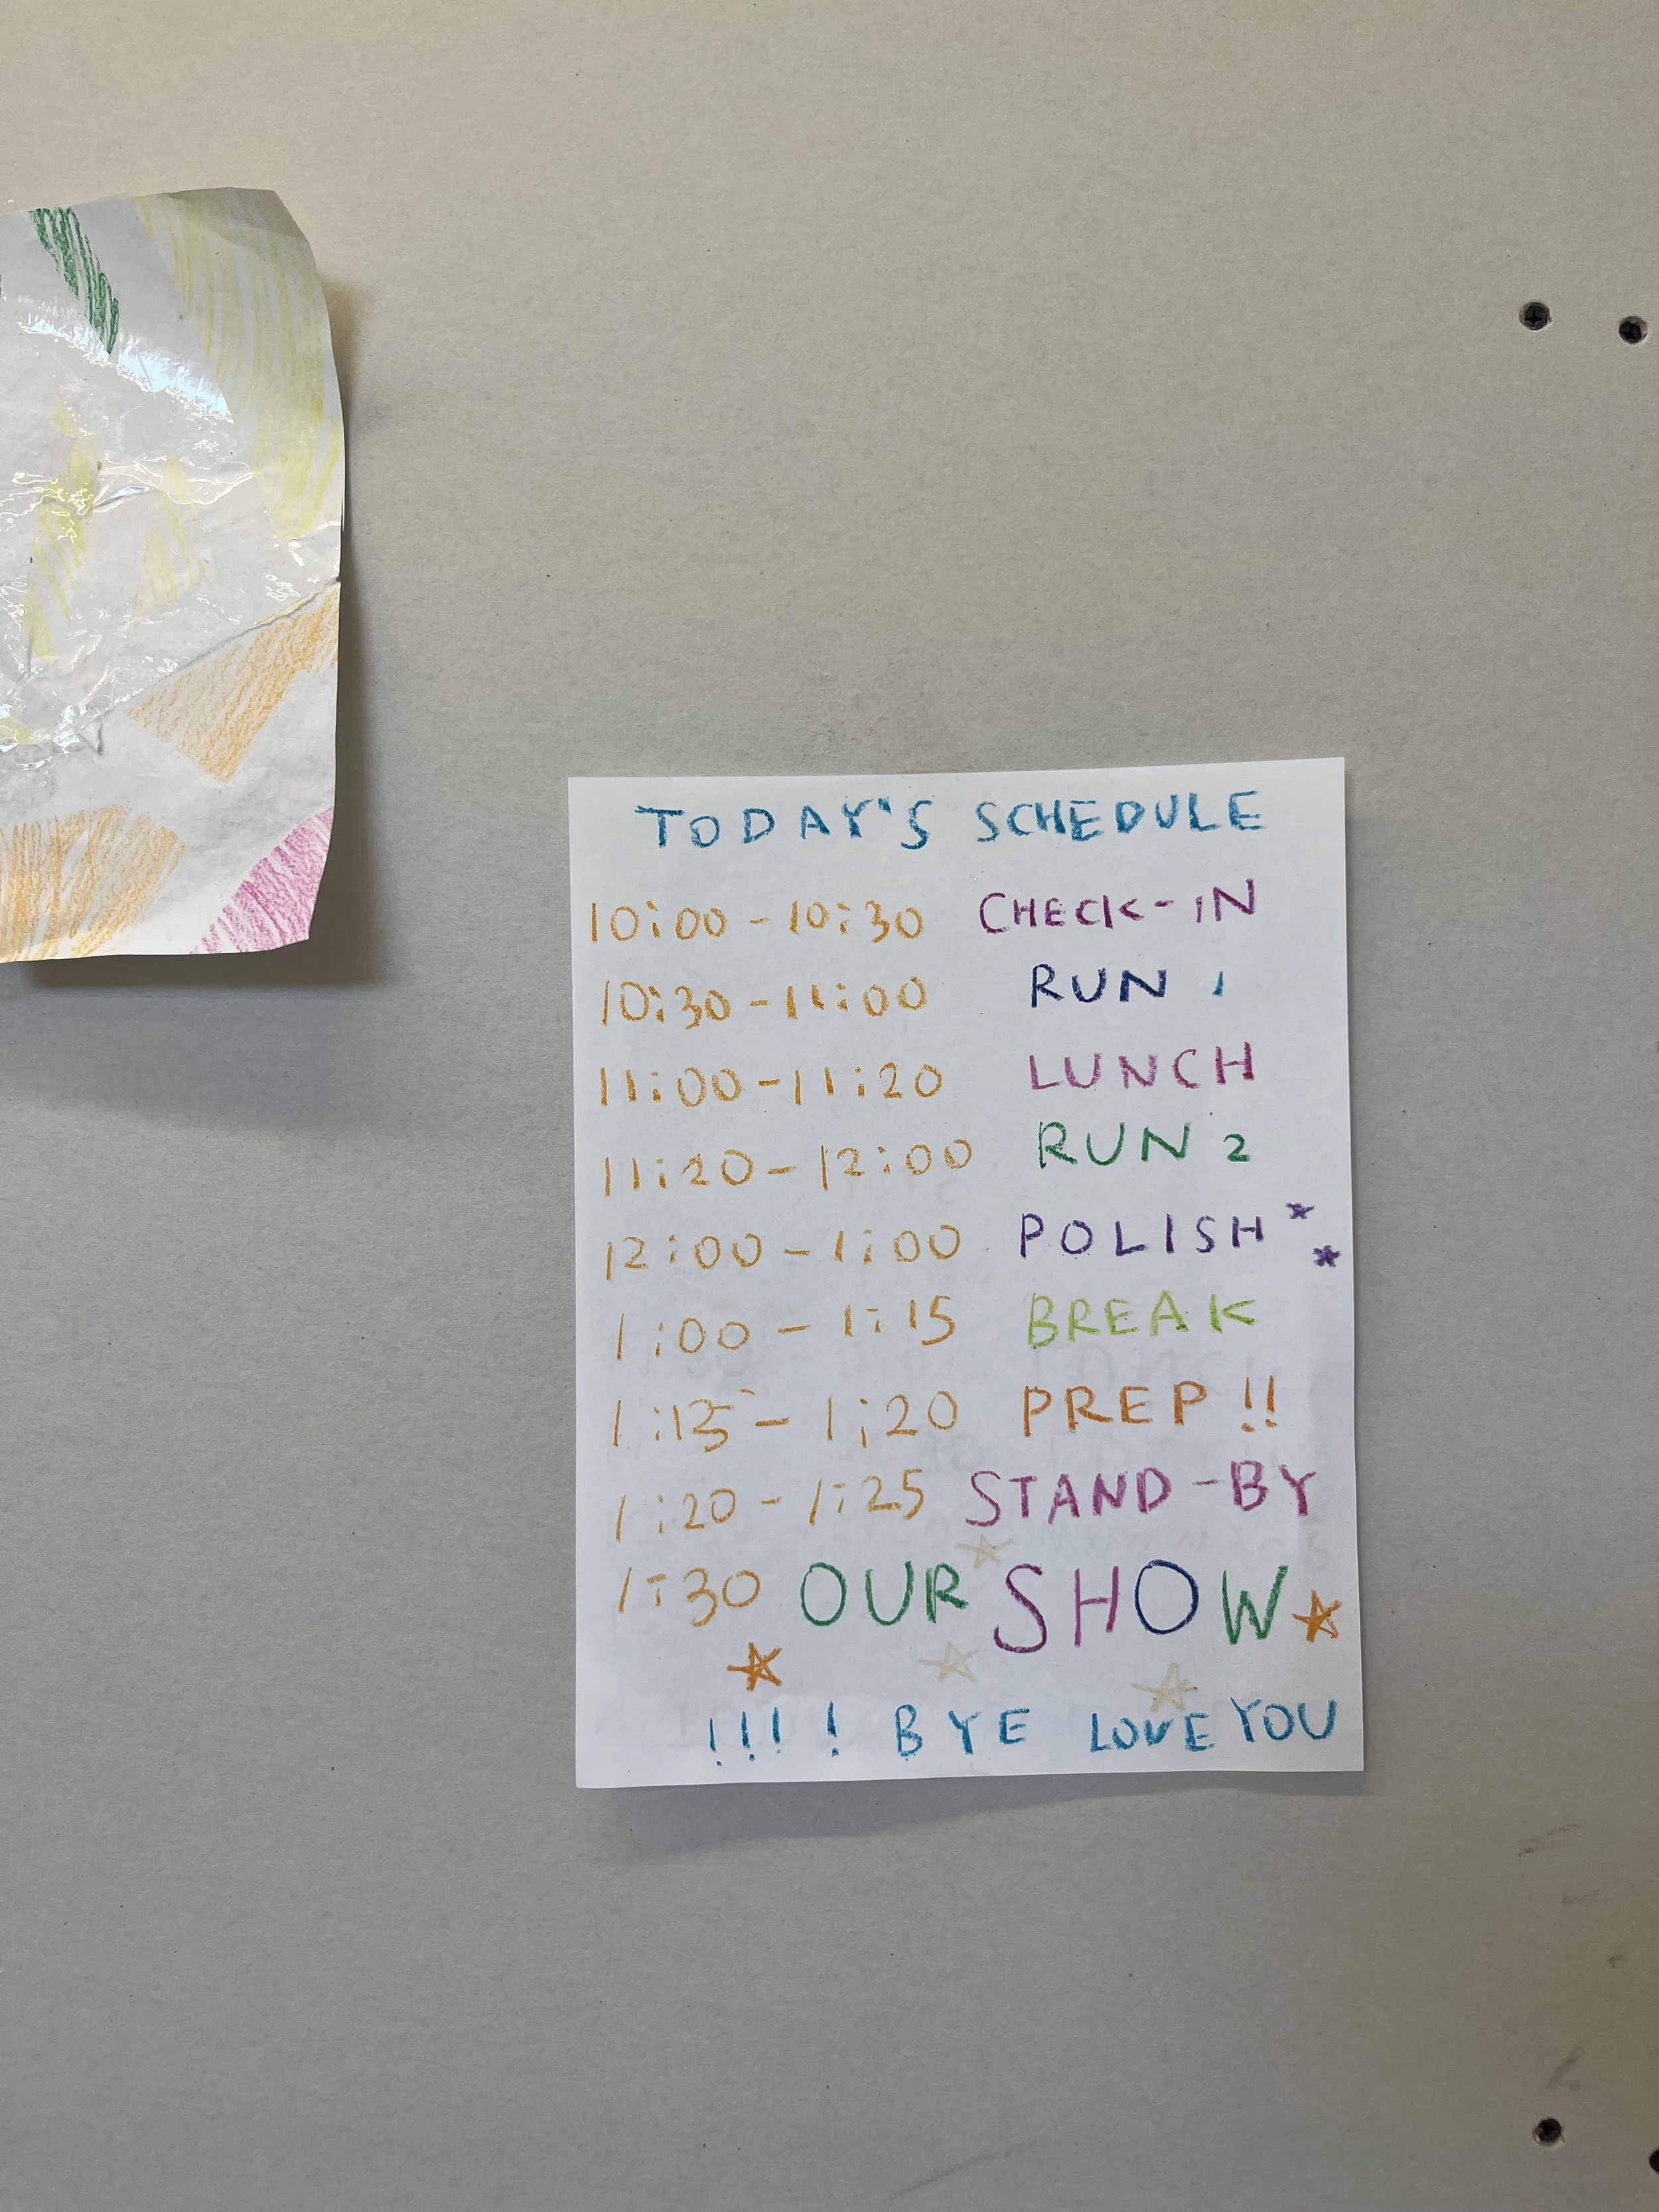 TODAY'S SCHEDULE
10:00 - 10:30 CHECK-IN
10:30 - 11:00 RUN 1
11:00 - 11:20 LUNCH
11:20 - 12:00 RUN 2
12:00 - 1:00 POLISH
1:00 - 1:15 BREAK
1:15 - 1:20 PREP!!
1:20 - 1:25 STAND-BY
1:30 OUR SHOW
!!!! BYE LOVE YOU